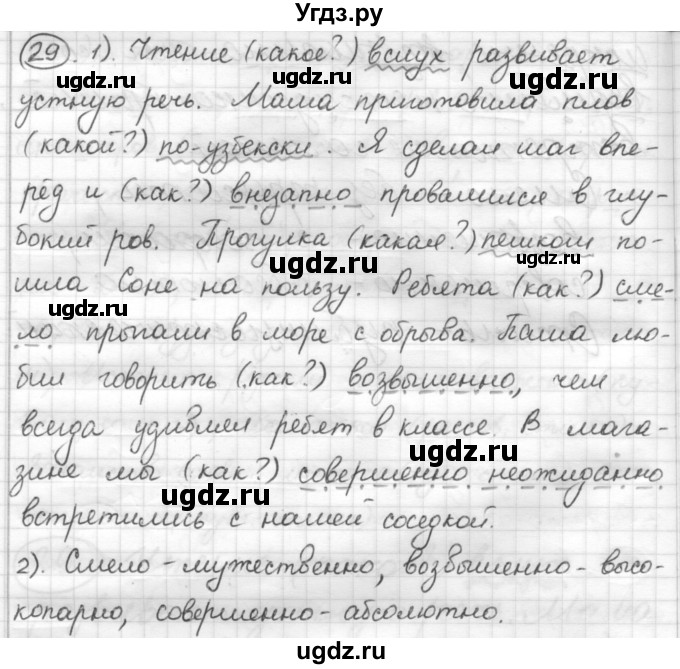 Угдз.ру
29. 1). Чтение (какое?) вслух развивает
устную речь. Мама приготовила плов
(какой?) по-узбекски. Я сделал шаг впе-
рёд и (как?) внезапно провалился в глу-
бокий ров. Прогулка (какая?) пешком по-
шла Соне на пользу. Ребята (как?) сме-
ло прыгали в море с обрыва. Паша лю-
бил говорить (как?) возвышенно, чем
всегда удивлял ребят в классе. В мага-
зине мы (как?) совершенно неожиданно
встретились с нашей соседкой.
2). Смело - мужественно, возвышенно - высо-
копарно, совершенно - абсолютно.
ugdz.ru ugdz.ru ugdz.ru
ugdz.ru
ugdz.ru
ugdz.ru
ugdz.ru ugdz.ru
ugdz.ru
ugdz.ru
ugdz.ru ugdz.ru
ugdz.ru
ugdz.ru
ugdz.ru ugdz.ru
ugdz.ru